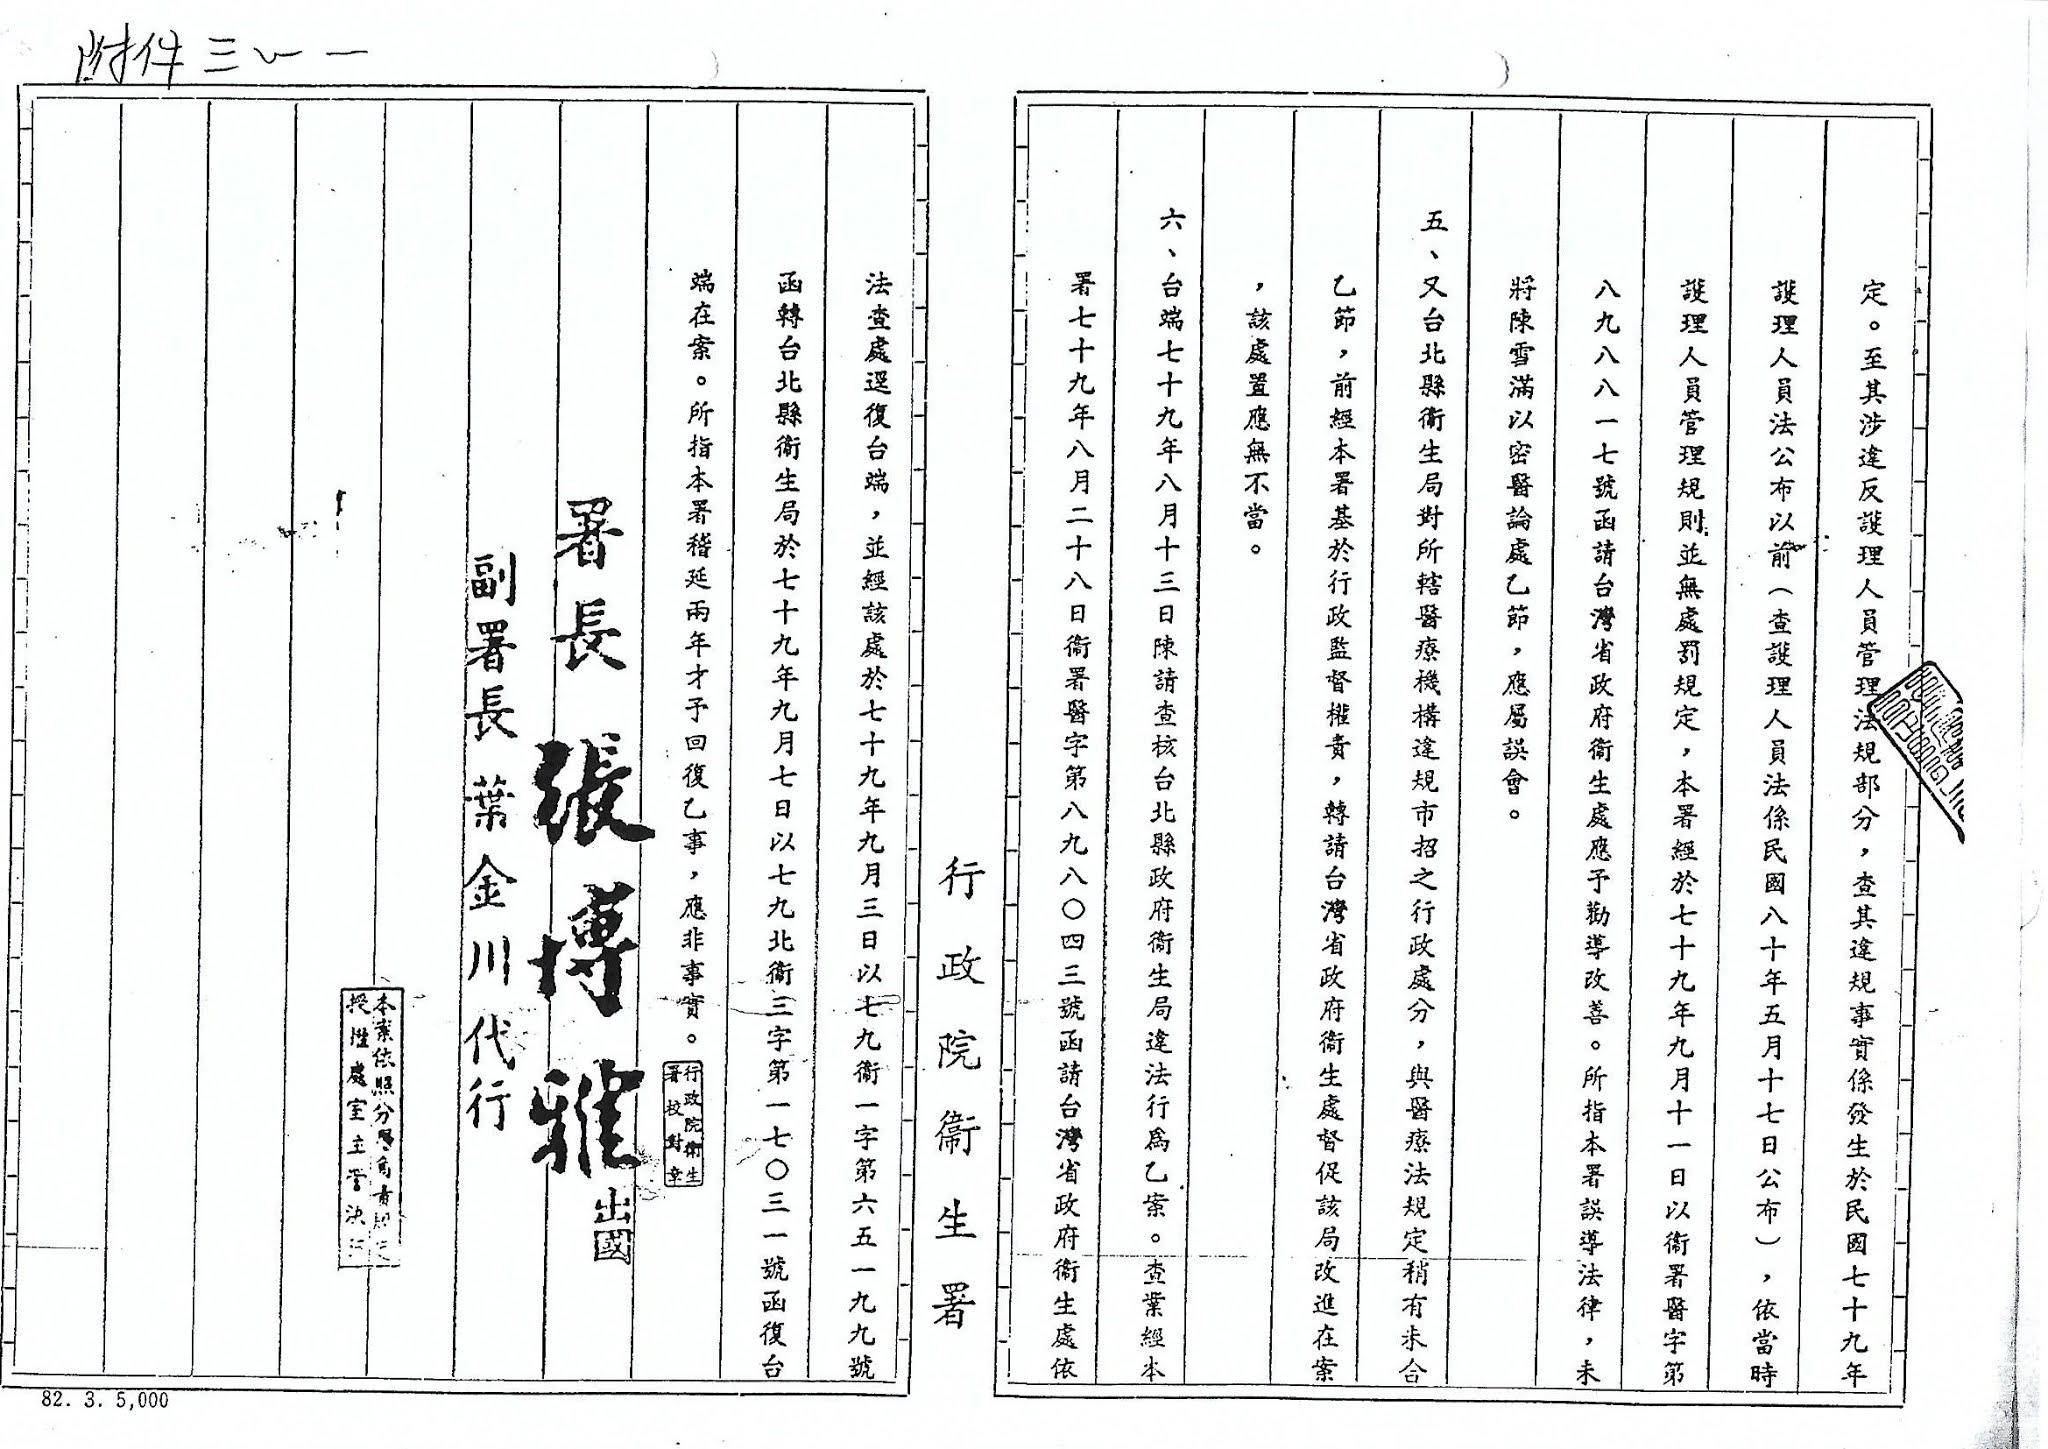 附件三~一
定。至其涉違反護理人員管理法規部分，查其違規事實係發生於民國七十九年
護理人員法公布以前（查護理人員法係民國八十年五月十七日公布），依當時
護理人員管理規則並無處罰規定，本署經於七十九年九月十一日以衛署醫字第
八九八八一七號函請台灣省政府衛生處應予勸導改善。所指本署誤導法律，未
將陳雪滿以密醫論處乙節，應屬誤會。
五、又台北縣衛生局對所轄醫療機構違規市招之行政處分，與醫療法規定稍有未合
乙節，前經本署基於行政監督權責，轉請台灣省政府衛生處督促該局改進在案
，該處置應無不當。
六、台端七十九年八月十三日陳請查核台北縣政府衛生局違法行為乙案。查業經本
署七十九年八月二十八日衛署醫字第八九八〇四三號函請台灣省政府衛生處依
行政院衛生署
法查處逕復台端，並經該處於七十九年九月三日以七九衛一字第六五一九九號
函轉台北縣衛生局於七十九年九月七日以七九北衛三字第一七〇三一號函復台
端在案。所指本署稽延兩年才予回復乙事，應非事實。
行政院衛生
署校對章
署長 張博雅 出國
副署長 葉金川 代行
本案依照分層負責規定
授權處室主管決行
82. 3. 5,000